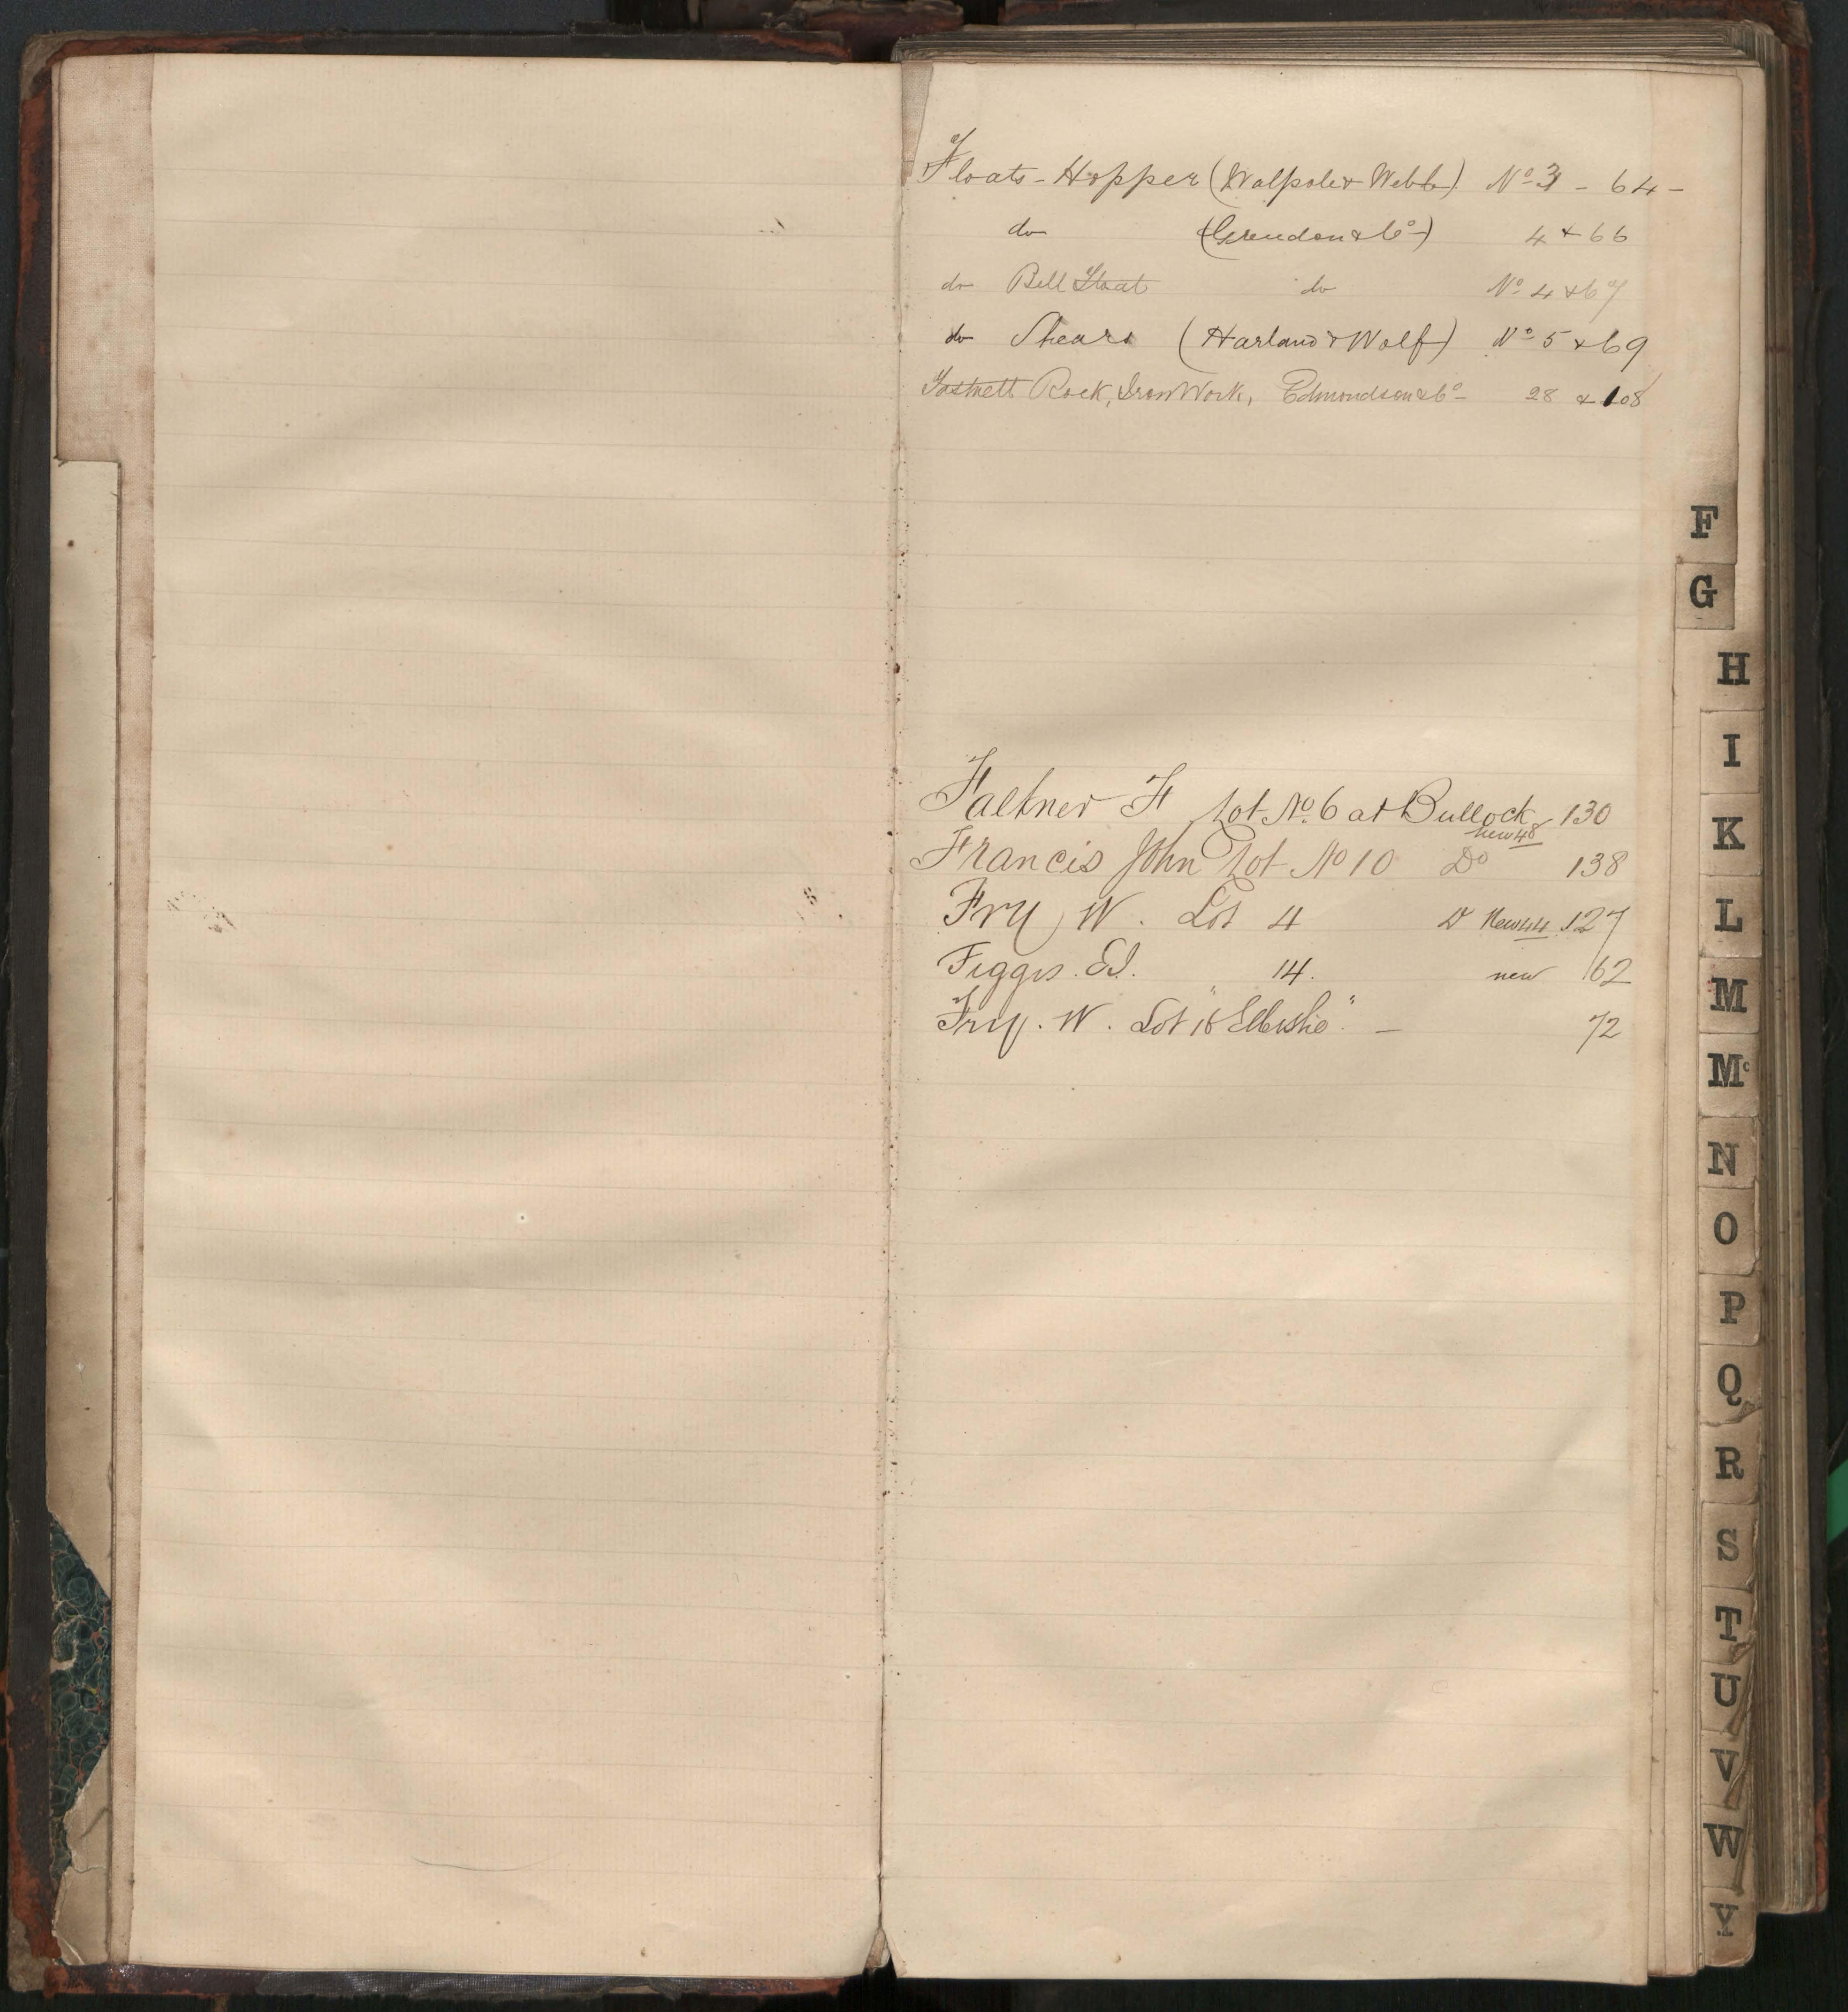 Floats - Hopper (Walpole & Webb) No 3 - 64 -
do (Grendon & Co) 4 & 66
do Bell Float do No 4 & 67
do Shears (Harland & Wolf) No 5 & 69
Fastnett Rock, Iron Work, Edmondson & Co 28 & 108
Falkner F Lot No. 6 at Bullock 130
new 48
Francis John Lot No 10 Do 138
Fry W. Lot 4 Do New 44 127
Figgis. Ed. 14. new 62
Fry. W. Lot 16 " " - 72
F
G
H
I
K
L
M
Mc
N
O
P
Q
R
S
T
U
V
W
Y